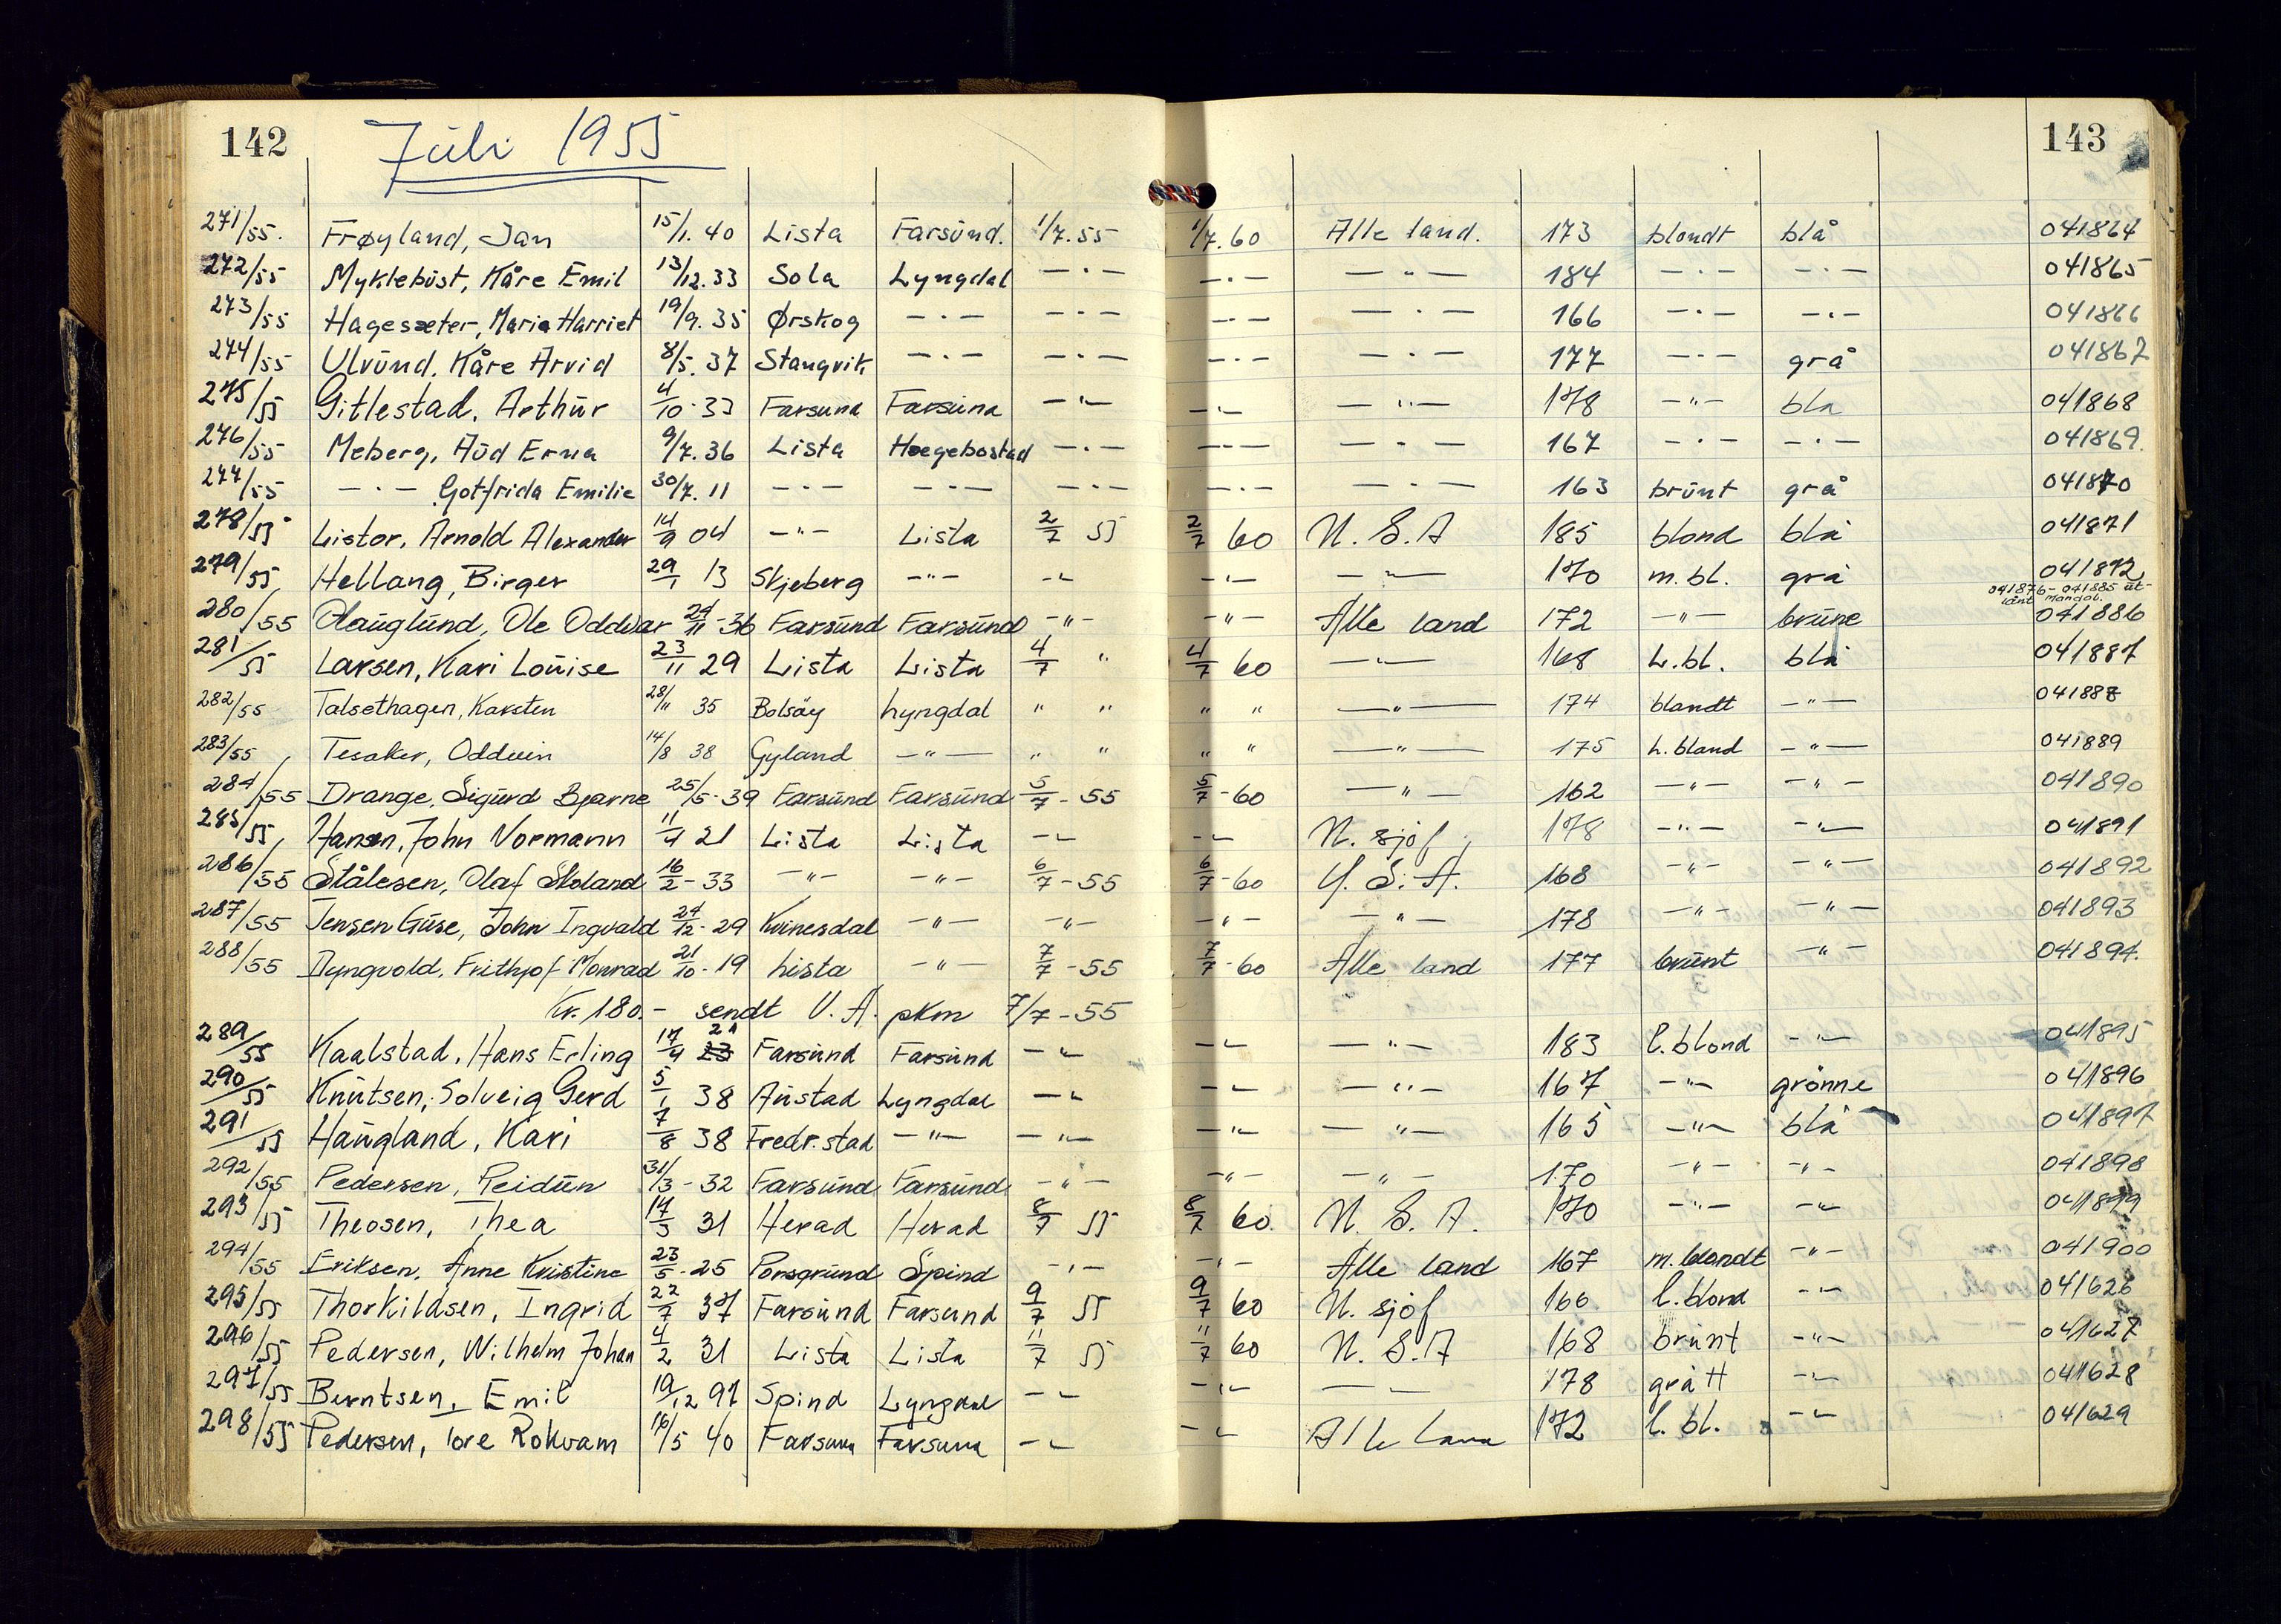 142
Juli 1955
143
271/55. Frøyland, Jan 15/1. 40 Lista Farsund. 1/7. 55 1/7. 60 Alle land. 173 blondt blå 041864
272/55 Myklebust, Kåre Emil 13/12. 33 Sola Lyngdal — · — — · — — " — 184 — · — — · — 041865
273/55 Hagesæter, Marie Harriet 19/9. 35 Ørskog — · — — · — — · — — · — 166 — · — — · — 041866
274/55 Ulvund, Kåre Arvid 8/5. 37 Stangvik — · — — · — — · — — · — 177 — · — grå 041867
275/55 Gitlestad, Arthur 4/10 · 33 Farsund Farsund — " — — " — — " — 178 — " — blå 041868
276/55 Meberg, Aud Erna 9/7. 36 Lista Hægebostad — · — — · — — · — 167 — · — — · — 041869.
277/55 — · — Gotfrida Emilie 30/7. 11 — · — — · — — · — — · — — · — 163 brunt grå 041870
278/55 Listor, Arnold Alexander 14/9 04 — " — Lista 2/7 55 2/7 60 U. S. A 185 blond blå 041871
279/55 Hellang, Birger 29/1 13 Skjeberg — " — — " — — " — — " — 170 m. bl. grå 041872
041876 - 041885 ut-
lånt Mandal.
280/55 Hauglund, Ole Oddvar 24/11 - 36 Farsund Farsund — " — — " — Alle land 172 — " — brune 041886
281/55 Larsen, Kari Louise 23/11 29 Lista Lista 4/7 " 4/7 60 — " — 168 L. bl. blå 041887
282/55 Talsethagen, Karsten 28/11 35 Bolsöy Lyngdal " " " " — " — 174 blandt — " — 041888
283/55 Tesaker, Oddvin 14/8 38 Gyland — " — " " " " — " — 175 L. bland — " — 041889
284/55 Drange, Sigurd Bjarne 25/5 - 39 Farsund Farsund 5/7 - 55 5/7 - 60 — " — 162 — " — — " — 041890
285/55 Hansen, John Normann 11/4 21 Lista Lista — " — — " — U. sjöf. 178 — " — — " — 041891
286/55 Stålesen, Olaf Skoland 16/2 - 33 — " — — " — 6/7 - 55 6/7 - 60 U. S. A. 168 — " — — " — 041892
287/55 Jensen Guse, John Ingvald 24/12 - 29 Kvinesdal — " — — " — — " — — " — 178 — " — — " — 041893
288/55 Dyngvold, Frithjof Monrad 21/10 - 19 Lista — " — 7/7 - 55 7/7 - 60 Alle land 177 brunt — " — 041894.
Kr. 180.- sendt U. A. pkm 7/7 - 55
289/55 Kaalstad, Hans Erling 17/4 21 Farsund Farsund — " — — " — — " — 183 l. blond — " — 041895
290/55 Knutsen, Solveig Gerd 5/1 38 Austad Lyngdal — " — — " — — " — 167 — " — grönne 041896
291/55 Haugland, Kari 7/8 38 Fredr.stad — " — — " — — " — — " — 165 — " — blå 041897
292/55 Pedersen, Reidun 31/3 - 32 Farsund Farsund — " — — " — — " — 170 — " — — " — 041898
293/55 Theosen, Thea 17/3 31 Herad Herad 8/7 55 8/7 60. U. S. A. 170 — " — — " — 041899
294/55 Eriksen, Anne Kristine 23/5 - 25 Porsgrund Spind — " — — " — Alle land 167 m. blondt — " — 041900
295/55 Thorkildsen, Ingrid 22/7 37 Farsund Farsund 9/7 55 9/7 60 U. sjöf 166 l. blond — " — 041626
296/55 Pedersen, Wilhelm Johan 4/2 31 Lista Lista 11/7 55 11/7 60 U. S. A 168 brunt — " — 041627
297/55 Berntsen, Emil 19/12 97 Spind Lyngdal — " — — " — — " — 178 grått — " — 041628
298/55 Pedersen, Tore Rokvam 16/5 40 Farsund Farsund — " — — " — Alle land 172 l. bl. — " — 041629